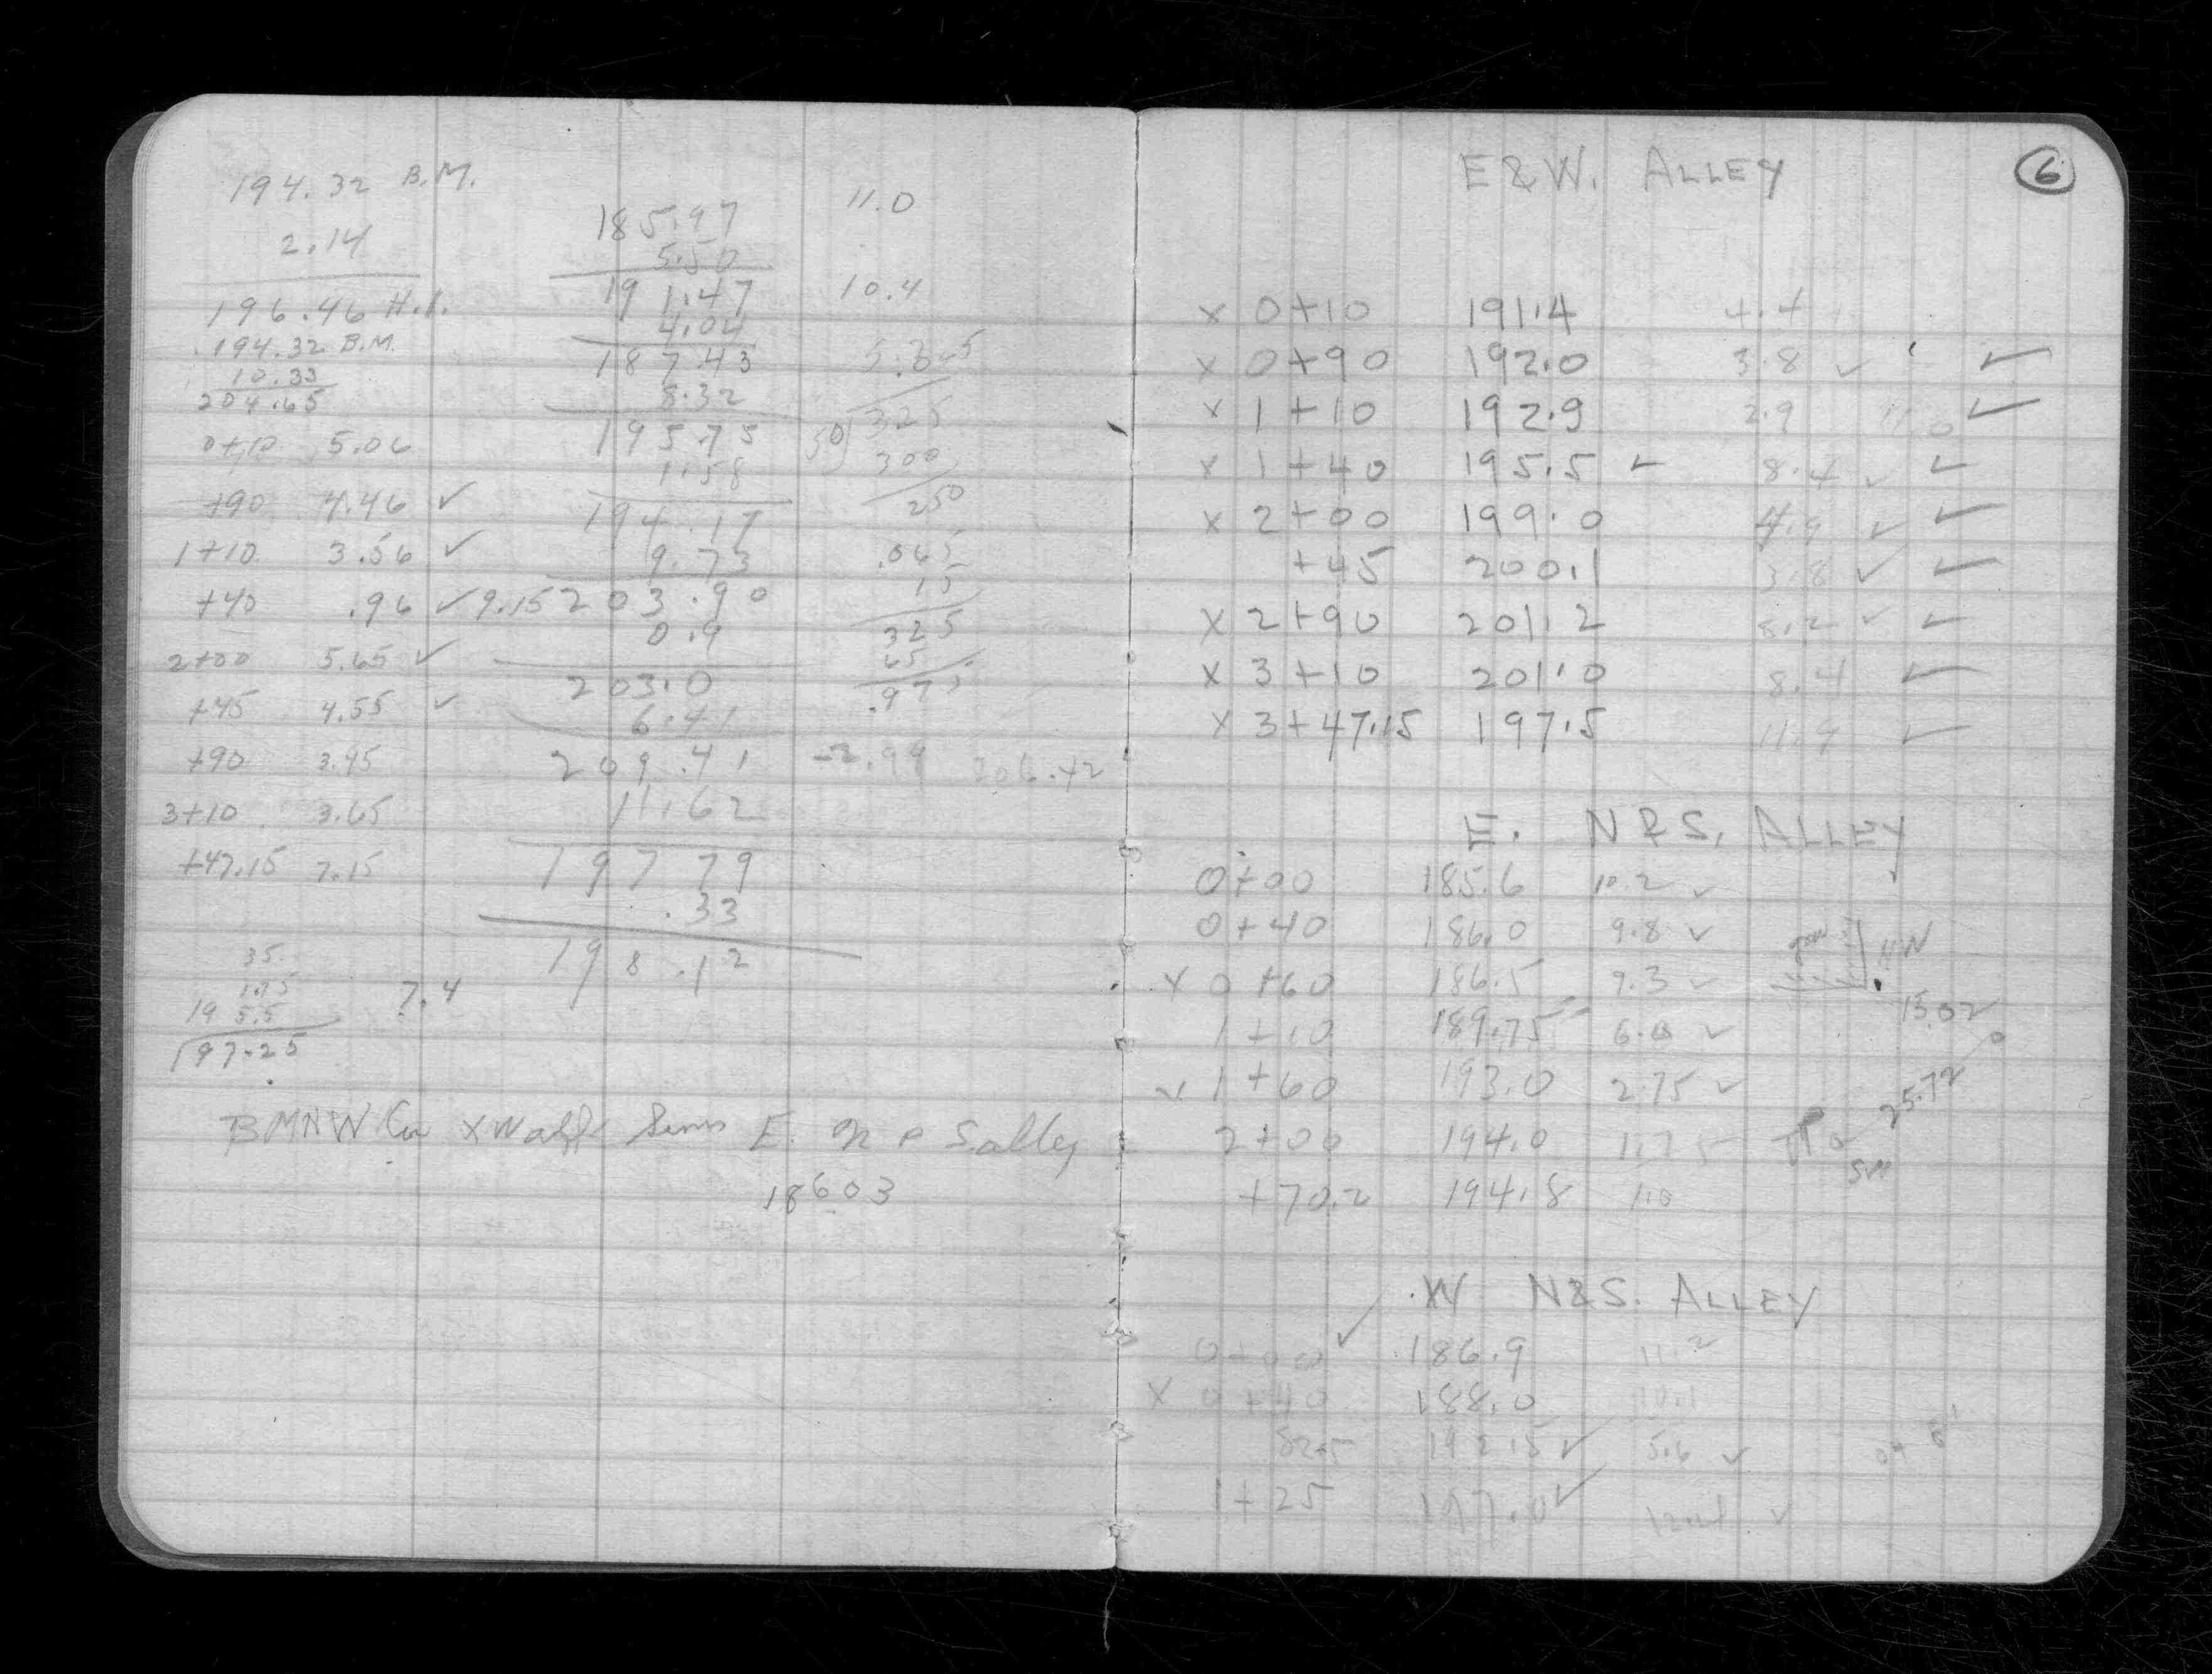 194.32 B.M.
2.14
196.46 H.I.
194.32 B.M.
10.33
204.65
0+10 5.06
+90 4.46 ✓
1+10 3.56 ✓
+40 .96 ✓
2+00 5.65 ✓
+45 4.55 ✓
+90 3.45
3+10 3.65
+47.15 7.15
35
1.75
195.5
197.25
7.4
185.97
5.50
191.47
4.04
187.43
8.32
195.75
1.58
194.17
9.73
9.15 203.90
0.9
203.0
6.41
209.41 -2.99 206.42
11.62
197 79
.33
198.12
11.0
10.4
325
50
300
250
.065
15
325
65
.975
BM NW Cor X Walk E. N & S. alley
186 03
6
E & W. ALLEY
x 0+10 191.4 4.4
x 0+90 192.0 3.8 ✓ ✓
x 1+10 192.9 2.9 11.0 ✓
x 1+40 195.5 ✓ 8.4 ✓ ✓
x 2+00 199.0 4.9 ✓ ✓
+45 200.1 3.8 ✓ ✓
x 2+90 201.2 8.2 ✓ ✓
x 3+10 201.0 8.4 ✓
x 3+47.15 197.5 11.9 ✓
E. N & S. ALLEY
0+00 185.6 10.2 ✓
0+40 186.0 9.8 ✓
x 0+60 186.5 9.3 ✓
1+10 189.75 6.0 ✓
✓ 1+60 193.0 2.75 ✓
2+00 194.0 1.75
+70.2 194.8 1.0
HW
15.02
25.72
W N & S. ALLEY
0+00 ✓ 186.9 11.2
x 0+40 188.0 10.1
82.5 192.5 ✓ 5.6 ✓
1+25 197.0 ✓ ✓